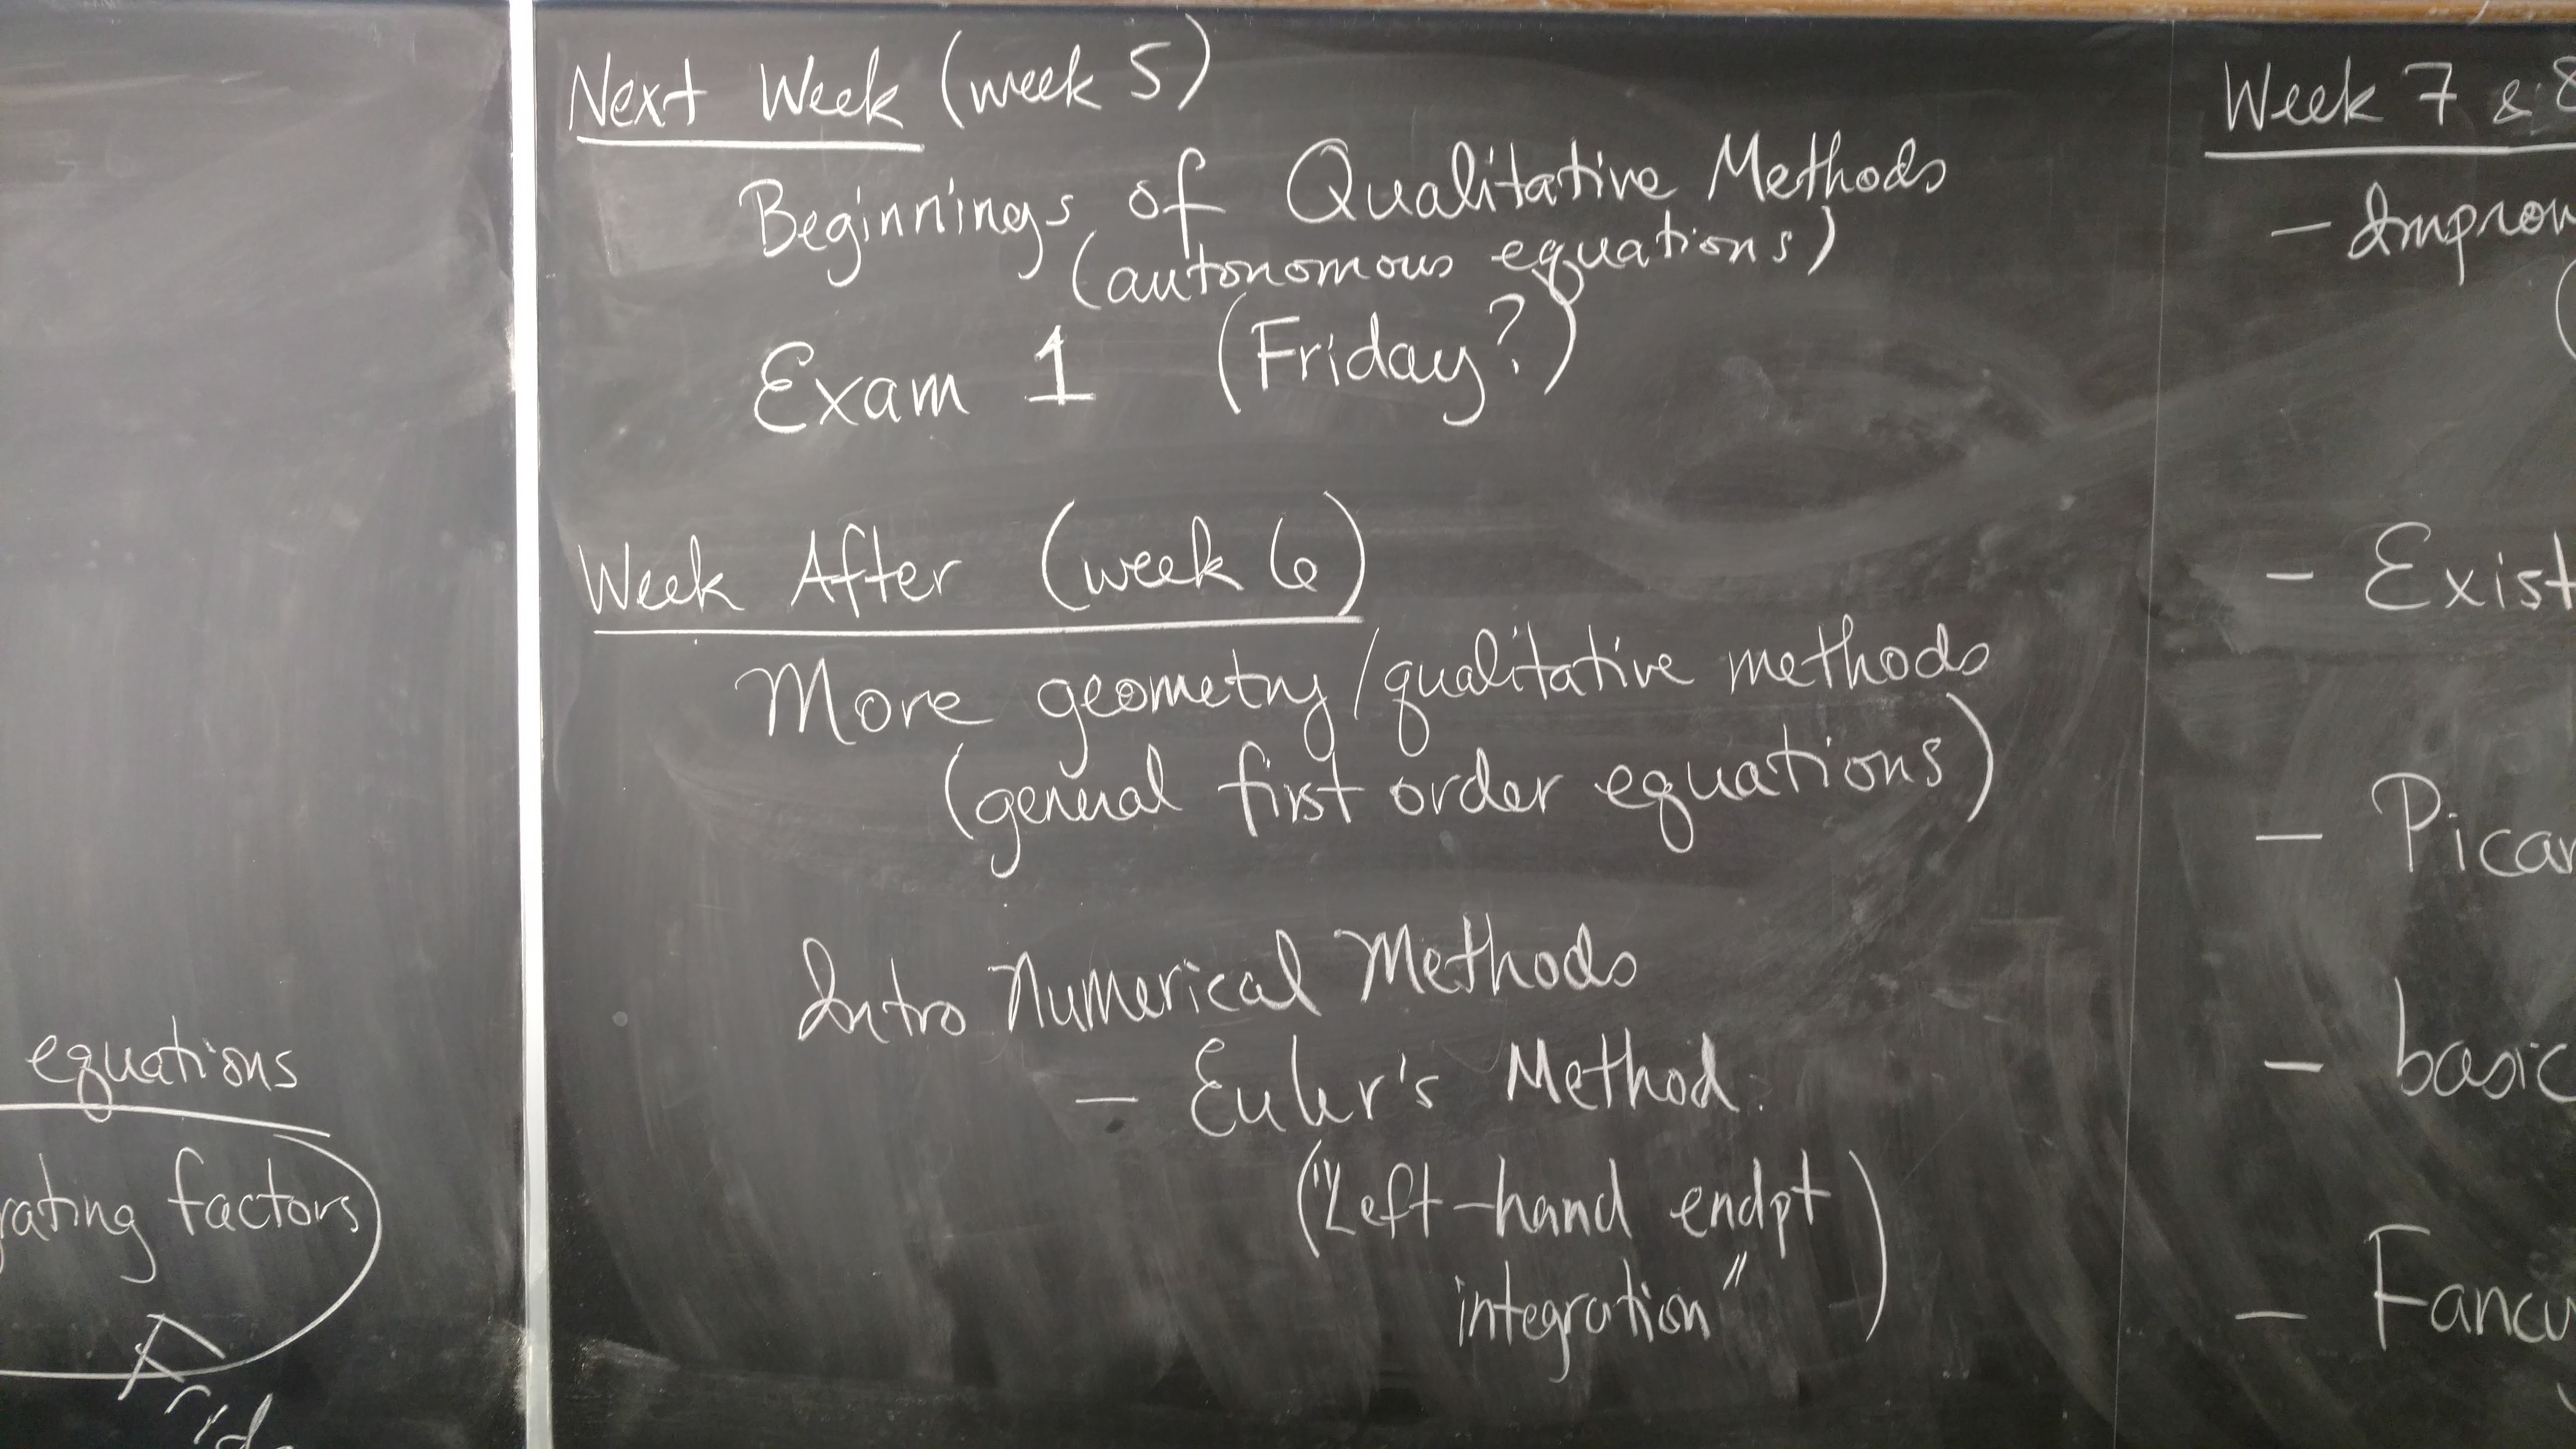 equations
factors
Next Week (week 5)
Beginnings of Qualitative Methods
(autonomous equations)
Exam 1 (Friday?)
Week After (week 6)
More geometry/qualitative methods
(general first order equations)
Intro Numerical Methods
- Euler's Method.
("Left-hand endpt
integration")
Week 7 & 8
-
- Exist
-
- basic
-